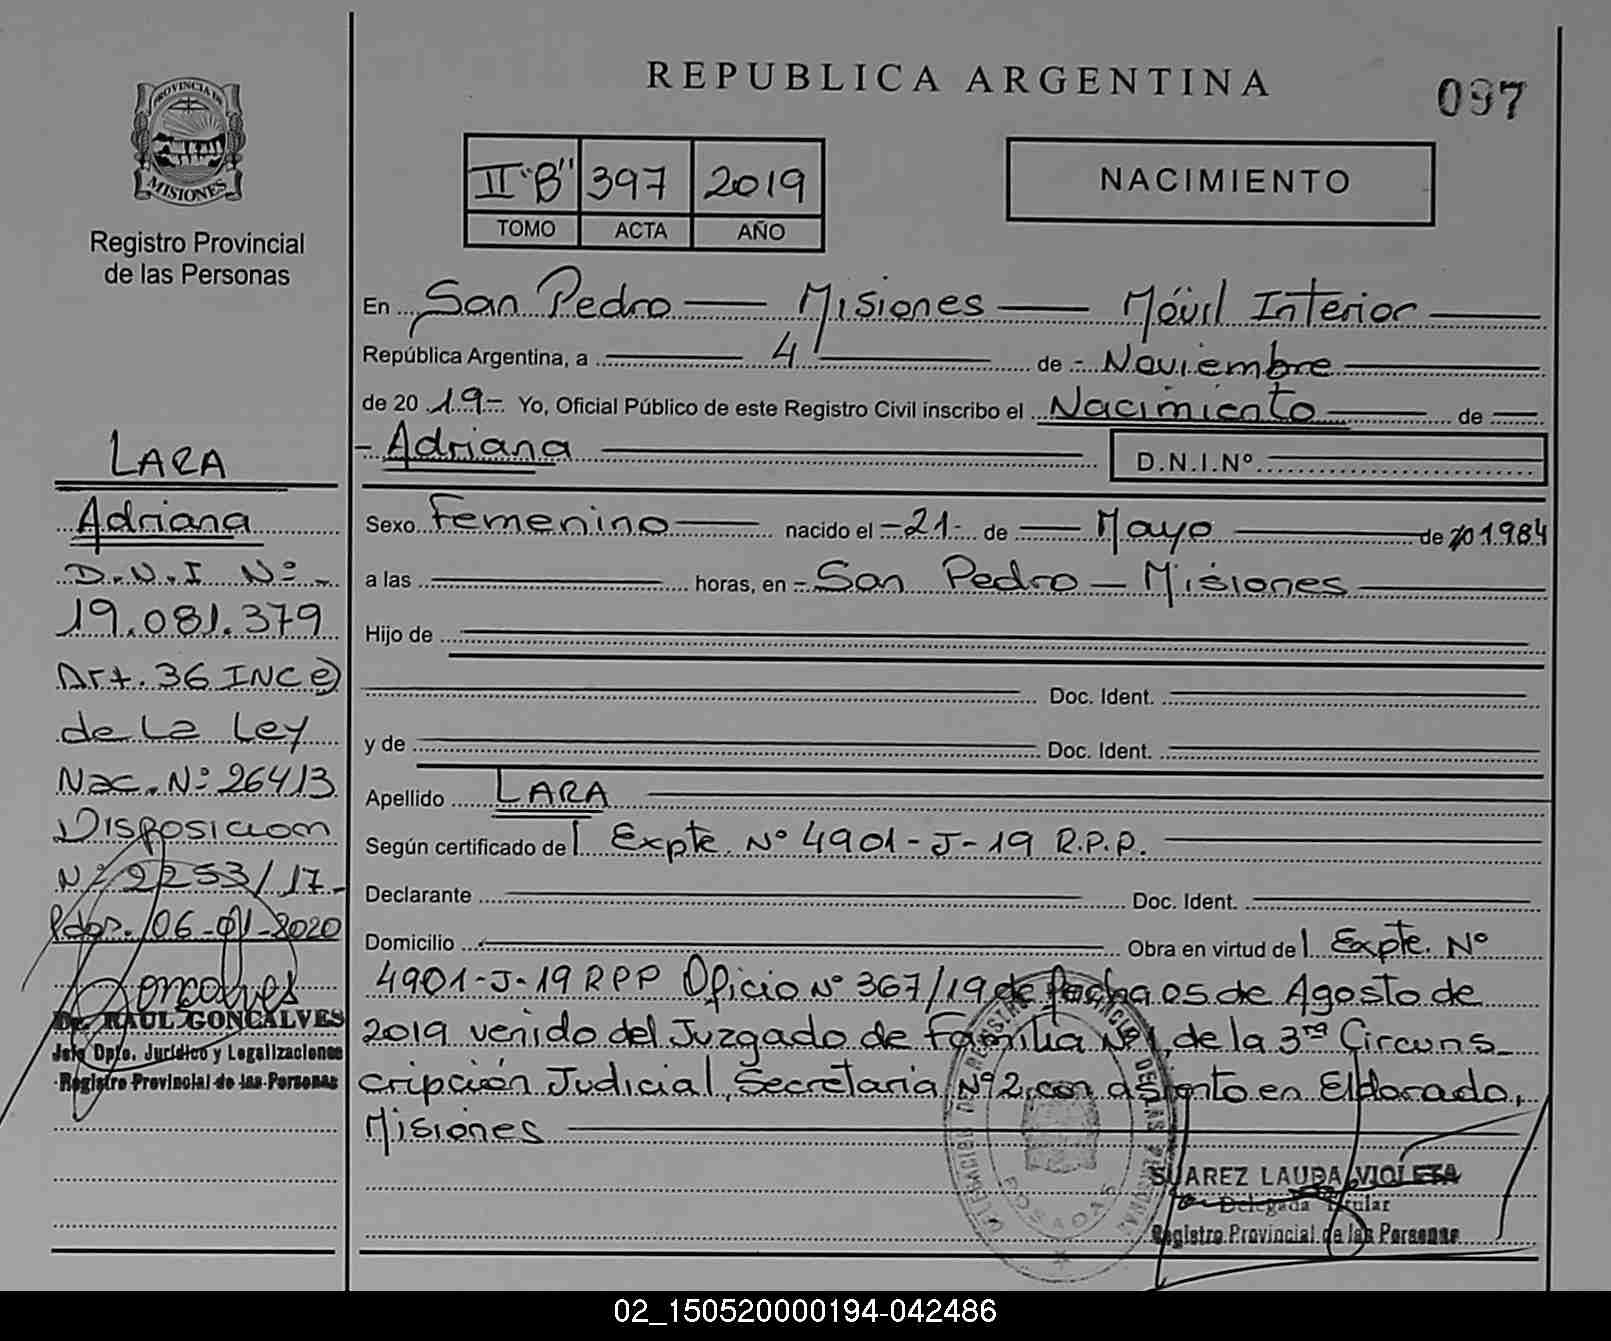 PROVINCIA DE
MISIONES
Registro Provincial
de las Personas
REPUBLICA ARGENTINA
097
II "B" 397 2019
TOMO ACTA AÑO
NACIMIENTO
En San Pedro — Misiones — Móvil Interior —
República Argentina, a — 4 — de - Noviembre —
de 20 19- Yo, Oficial Público de este Registro Civil inscribo el Nacimiento — de —
- Adriana — D.N.I.Nº —
Sexo Femenino — nacido el -21- de — Mayo — de 20 1984
a las — horas, en - San Pedro — Misiones —
Hijo de —
— Doc. Ident. —
y de — Doc. Ident. —
Apellido LARA —
Según certificado de l Expte. Nº 4901-J-19 R.P.P. —
Declarante — Doc. Ident. —
Domicilio — Obra en virtud de l Expte. Nº
4901-J-19 RPP Oficio Nº 367/19 de fecha 05 de Agosto de
2019 venido del Juzgado de Familia Nº 1, de la 3ra Circuns_
cripción Judicial, Secretaria Nº 2, con asiento en Eldorado,
Misiones —
LARA
Adriana
D.N.I Nº -
19.081.379
Art. 36 INC e)
de La Ley
Nac. Nº 26413
Disposicion
Nº 2253/17-
Pdas. 06-01-2020
Goncalves
Dr. RAUL GONCALVES
Jefe Dpto. Jurídico y Legalizaciones
Registro Provincial de las Personas
POSADAS
SUAREZ LAURA VIOLETA
Delegada Titular
Registro Provincial de las Personas
02_150520000194-042486